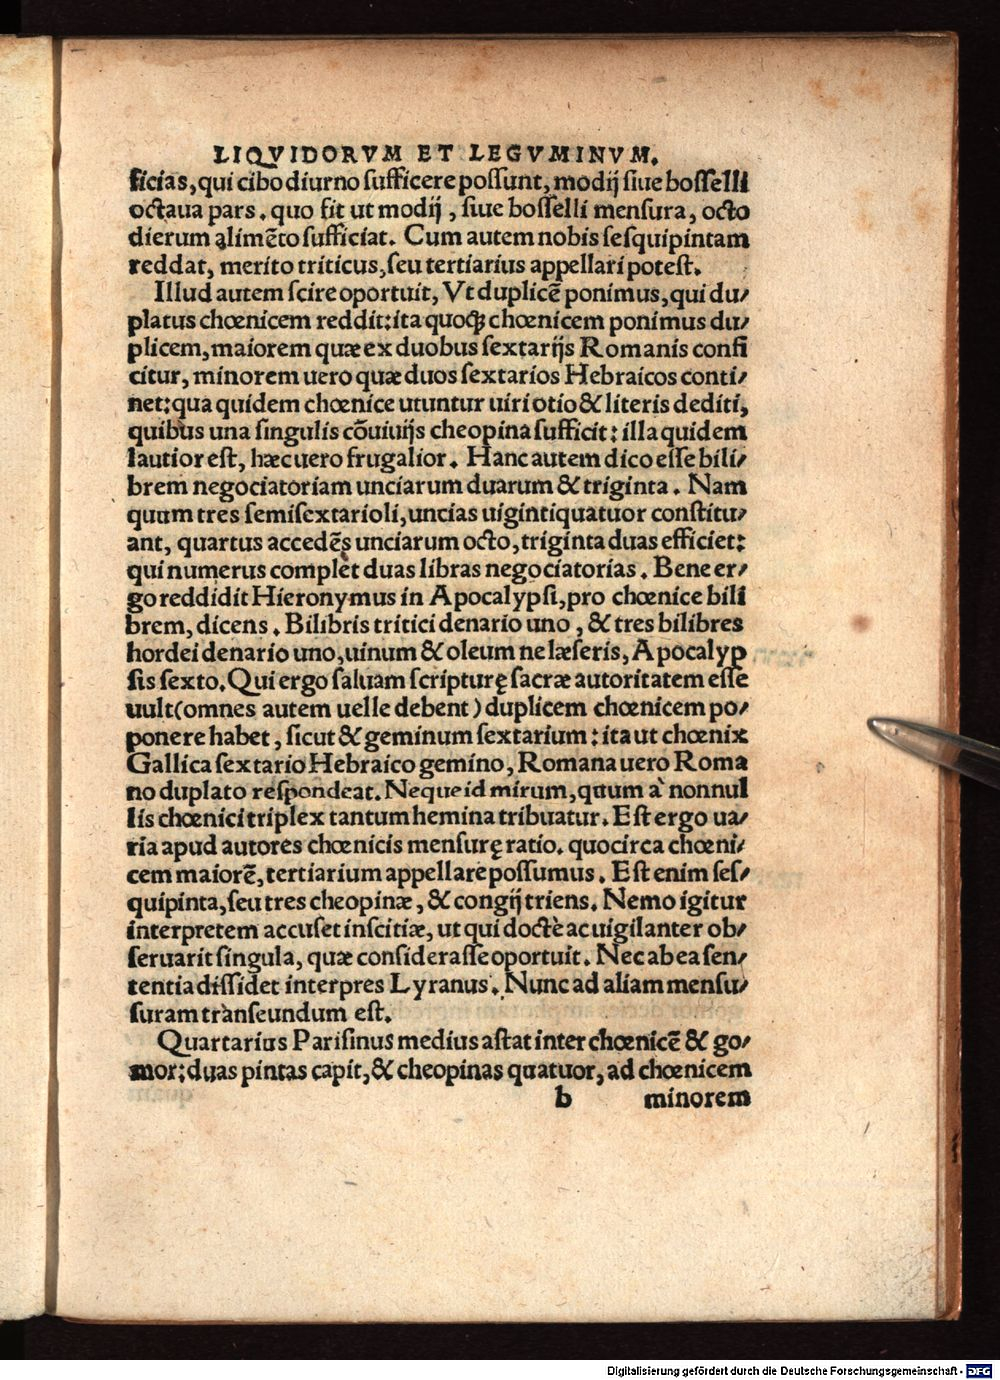 LIQVIDORVM ET LEGVMINVM.
ficias, qui cibo diurno sufficere possunt, modij siue bosselli
octaua pars. quo fit ut modij, siue bosselli mensura, octo
dierum alimēto sufficiat. Cum autem nobis sesquipintam
reddat, merito triticus, seu tertiarius appellari potest.
Illud autem scire oportuit, Vt duplicē ponimus, qui du/
platus chœnicem reddit: ita quoqꝫ chœnicem ponimus du/
plicem, maiorem quæ ex duobus sextarijs Romanis confi
citur, minorem uero quæ duos sextarios Hebraicos conti/
net: qua quidem chœnice utuntur uiri otio & literis dediti,
quibus una singulis cōuiuijs cheopina sufficit: illa quidem
lautior est, hæc uero frugalior. Hanc autem dico esse bili/
brem negociatoriam unciarum duarum & triginta. Nam
quum tres semisextarioli, uncias uigintiquatuor constitu/
ant, quartus accedēs unciarum octo, triginta duas efficiet:
qui numerus complet duas libras negociatorias. Bene er/
go reddidit Hieronymus in Apocalypsi, pro chœnice bili
brem, dicens. Bilibris tritici denario uno, & tres bilibres
hordei denario uno, uinum & oleum ne læseris, Apocalyp
sis sexto. Qui ergo saluam scripturę sacræ autoritatem esse
uult (omnes autem uelle debent) duplicem chœnicem po/
ponere habet, sicut & geminum sextarium: ita ut chœnix
Gallica sextario Hebraico gemino, Romana uero Roma
no duplato respondeat. Neque id mirum, quum à nonnul
lis chœnici triplex tantum hemina tribuatur. Est ergo ua/
ria apud autores chœnicis mensurę ratio. quocirca chœni/
cem maiorē, tertiarium appellare possumus. Est enim ses/
quipinta, seu tres cheopinæ, & congij triens. Nemo igitur
interpretem accuset inscitiæ, ut qui doctè ac uigilanter ob/
seruarit singula, quæ considerasse oportuit. Nec ab ea sen/
tentia dissidet interpres Lyranus. Nunc ad aliam mensu/
suram transeundum est.
Quartarius Parisinus medius astat inter chœnicē & go/
mor: duas pintas capit, & cheopinas quatuor, ad chœnicem
b minorem
Digitalisierung gefördert durch die Deutsche Forschungsgemeinschaft - DFG